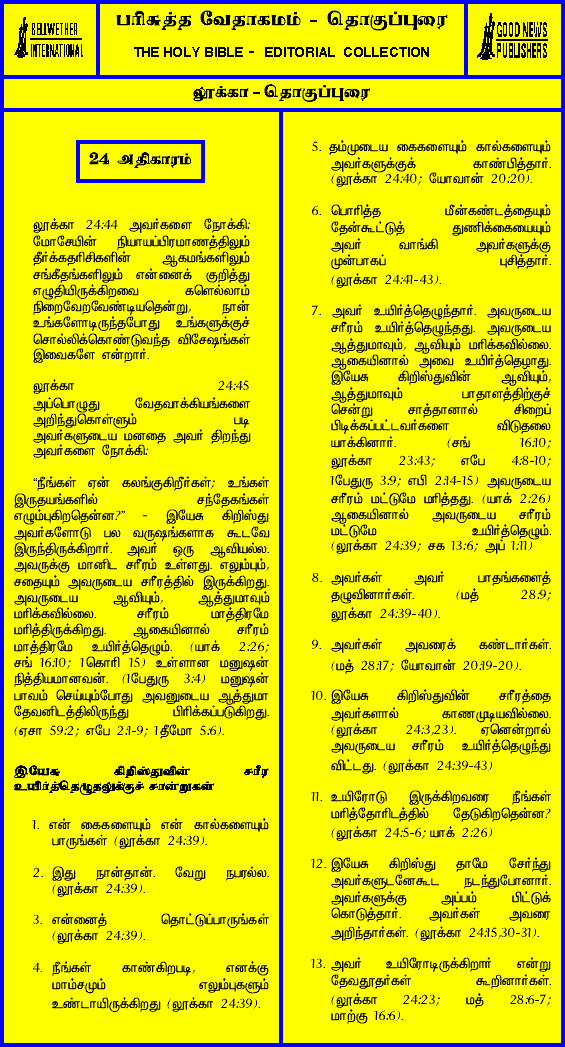 BELLWETHER
INTERNATIONAL
பரிசுத்த வேதாகமம் - தொகுப்புரை
THE HOLY BIBLE - EDITORIAL COLLECTION
GOOD NEWS
PUBLISHERS
லூக்கா - தொகுப்புரை
24 அதிகாரம்
லூக்கா 24:44 அவர்களை நோக்கி:
மோசேயின் நியாயப்பிரமாணத்திலும்
தீர்க்கதரிசிகளின் ஆகமங்களிலும்
சங்கீதங்களிலும் என்னைக் குறித்து
எழுதியிருக்கிறவை களெல்லாம்
நிறைவேறவேண்டியதென்று, நான்
உங்களோடிருந்தபோது உங்களுக்குச்
சொல்லிக்கொண்டுவந்த விசேஷங்கள்
இவைகளே என்றார்.
லூக்கா 24:45
அப்பொழுது வேதவாக்கியங்களை
அறிந்துகொள்ளும் படி
அவர்களுடைய மனதை அவர் திறந்து
அவர்களை நோக்கி:
“நீங்கள் ஏன் கலங்குகிறீர்கள்; உங்கள்
இருதயங்களில் சந்தேகங்கள்
எழும்புகிறதென்ன?” - இயேசு கிறிஸ்து
அவர்களோடு பல வருஷங்களாக கூடவே
இருந்திருக்கிறார். அவர் ஒரு ஆவியல்ல.
அவருக்கு மானிட சரீரம் உள்ளது. எலும்பும்,
சதையும் அவருடைய சரீரத்தில் இருக்கிறது.
அவருடைய ஆவியும், ஆத்துமாவும்
மரிக்கவில்லை. சரீரம் மாத்திரமே
மரித்திருக்கிறது. ஆகையினால் சரீரம்
மாத்திரமே உயிர்த்தெழும். (யாக் 2:26;
சங் 16:10; 1கொரி 15) உள்ளான மனுஷன்
நித்தியமானவன். (1பேதுரு 3:4) மனுஷன்
பாவம் செய்யும்போது அவனுடைய ஆத்துமா
தேவனிடத்திலிருந்து பிரிக்கப்படுகிறது.
(ஏசா 59:2; எபே 2:1-9; 1தீமோ 5:6).
இயேசு கிறிஸ்துவின் சரீர
உயிர்த்தெழுதலுக்குச் சான்றுகள்
1. என் கைகளையும் என் கால்களையும்
பாருங்கள் (லூக்கா 24:39).
2. இது நான்தான். வேறு நபரல்ல.
(லூக்கா 24:39).
3. என்னைத் தொட்டுப்பாருங்கள்
(லூக்கா 24:39).
4. நீங்கள் காண்கிறபடி, எனக்கு
மாம்சமும் எலும்புகளும்
உண்டாயிருக்கிறது (லூக்கா 24:39).
5. தம்முடைய கைகளையும் கால்களையும்
அவர்களுக்குக் காண்பித்தார்.
(லூக்கா 24:40; யோவான் 20:20).
6. பொரித்த மீன்கண்டத்தையும்
தேன்கூட்டுத் துணிக்கையையும்
அவர் வாங்கி அவர்களுக்கு
முன்பாகப் புசித்தார்.
(லூக்கா 24:41-43).
7. அவர் உயிர்த்தெழுந்தார். அவருடைய
சரீரம் உயிர்த்தெழுந்தது. அவருடைய
ஆத்துமாவும், ஆவியும் மரிக்கவில்லை.
ஆகையினால் அவை உயிர்த்தெழாது.
இயேசு கிறிஸ்துவின் ஆவியும்,
ஆத்துமாவும் பாதாளத்திற்குச்
சென்று சாத்தானால் சிறைப்
பிடிக்கப்பட்டவர்களை விடுதலை
யாக்கினார். (சங் 16:10;
லூக்கா 23:43; எபே 4:8-10;
1பேதுரு 3:9; எபி 2:14-15) அவருடைய
சரீரம் மட்டுமே மரித்தது. (யாக் 2:26)
ஆகையினால் அவருடைய சரீரம்
மட்டுமே உயிர்த்தெழும்.
(லூக்கா 24:39; சக 13:6; அப் 1:11)
8. அவர்கள் அவர் பாதங்களைத்
தழுவினார்கள். (மத் 28:9;
லூக்கா 24:39-40).
9. அவர்கள் அவரைக் கண்டார்கள்.
(மத் 28:17; யோவான் 20:19-20).
10. இயேசு கிறிஸ்துவின் சரீரத்தை
அவர்களால் காணமுடியவில்லை.
(லூக்கா 24:3,23). ஏனென்றால்
அவருடைய சரீரம் உயிர்த்தெழுந்து
விட்டது. (லூக்கா 24:39-43)
11. உயிரோடு இருக்கிறவரை நீங்கள்
மரித்தோரிடத்தில் தேடுகிறதென்ன?
(லூக்கா 24:5-6; யாக் 2:26)
12. இயேசு கிறிஸ்து தாமே சேர்ந்து
அவர்களுடனேகூட நடந்துபோனார்.
அவர்களுக்கு அப்பம் பிட்டுக்
கொடுத்தார். அவர்கள் அவரை
அறிந்தார்கள். (லூக்கா 24:15,30-31).
13. அவர் உயிரோடிருக்கிறார் என்று
தேவதூதர்கள் கூறினார்கள்.
(லூக்கா 24:23; மத் 28:6-7;
மாற்கு 16:6).